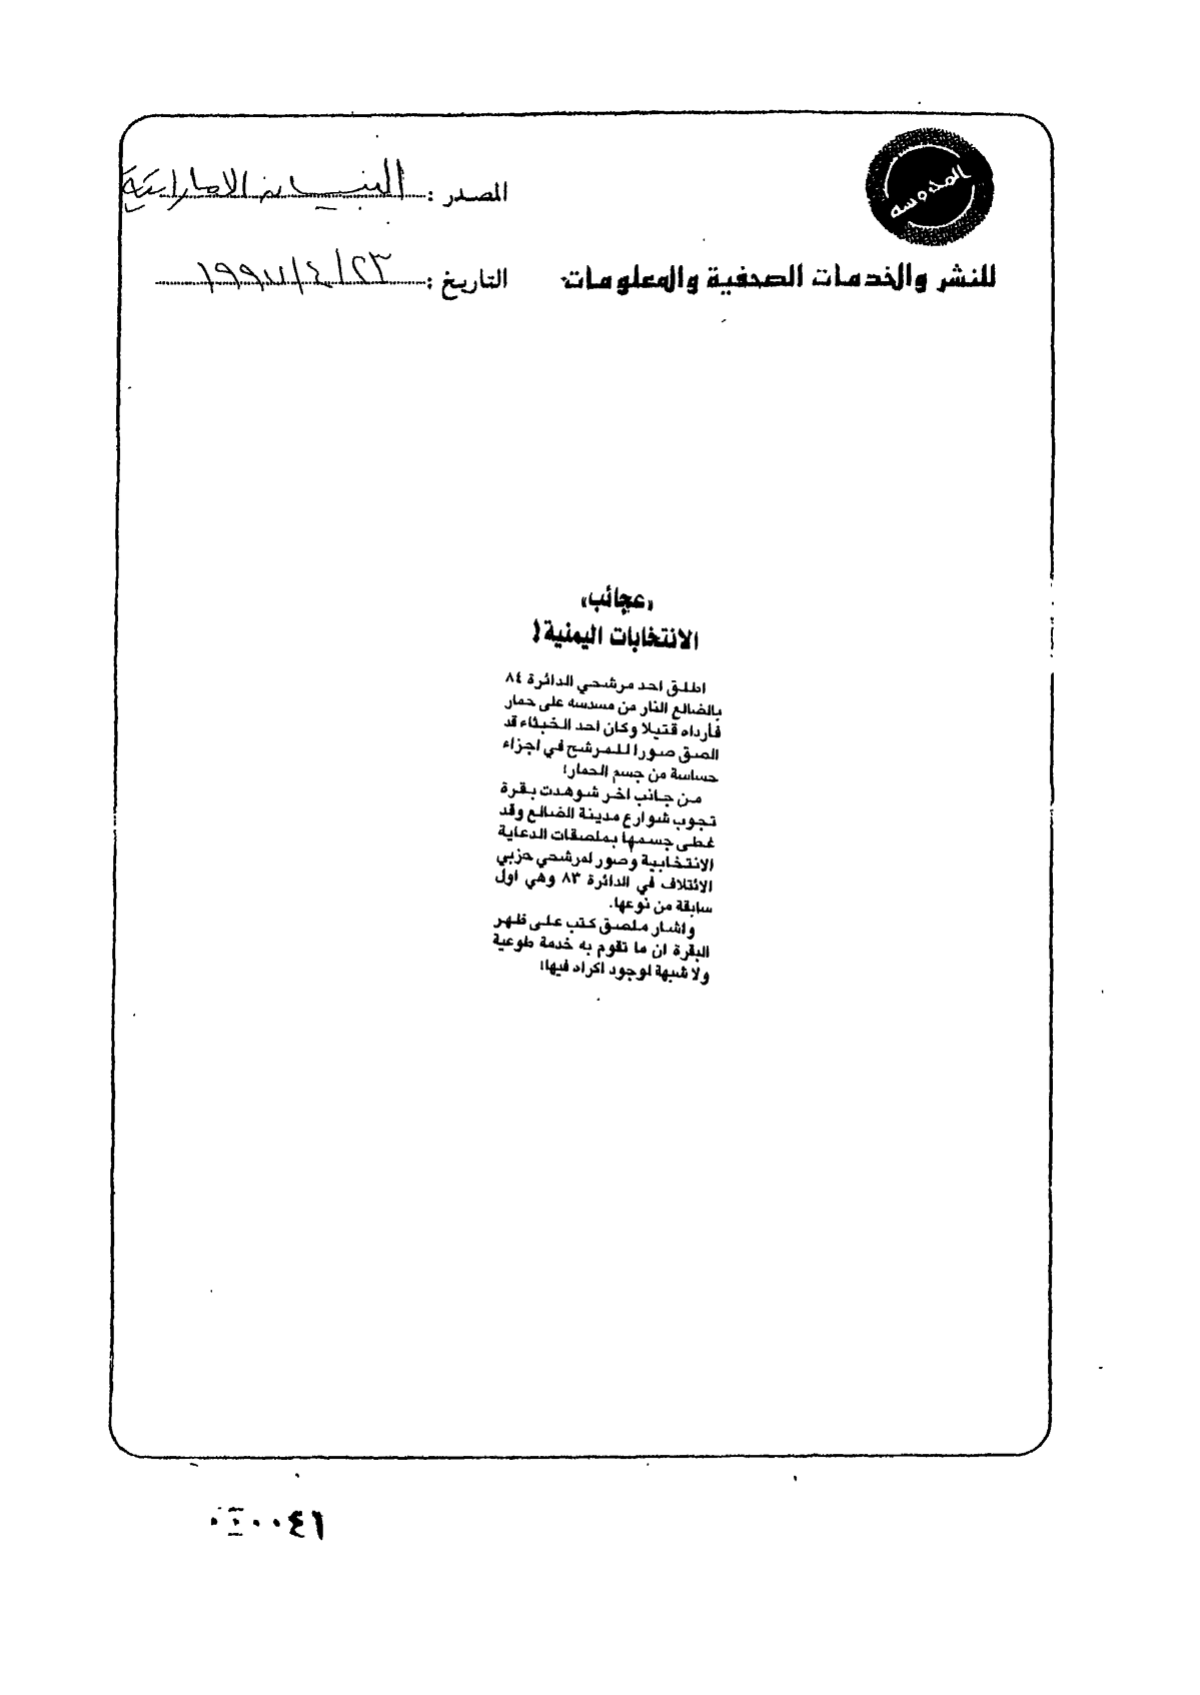 المدوسه
للنشر والخدمات الصحفية والمعلومات
المصدر : البيان الاماراتية
التاريخ : ٢٣/٤/١٩٩٧
«عجائب»
الانتخابات اليمنية!
اطلق احد مرشحي الدائرة ٨٤
بالضالع النار من مسدسه على حمار
فأرداه قتيلا وكان احد الخبثاء قد
الصق صورا للمرشح في اجزاء
حساسة من جسم الحمار!
من جانب اخر شوهدت بقرة
تجوب شوارع مدينة الضالع وقد
غطى جسمها بملصقات الدعاية
الانتخابية وصور لمرشحي حزبي
الائتلاف في الدائرة ٨٣ وهي اول
سابقة من نوعها.
واشار ملصق كتب على ظهر
البقرة ان ما تقوم به خدمة طوعية
ولا شبهة لوجود اكراه فيها!